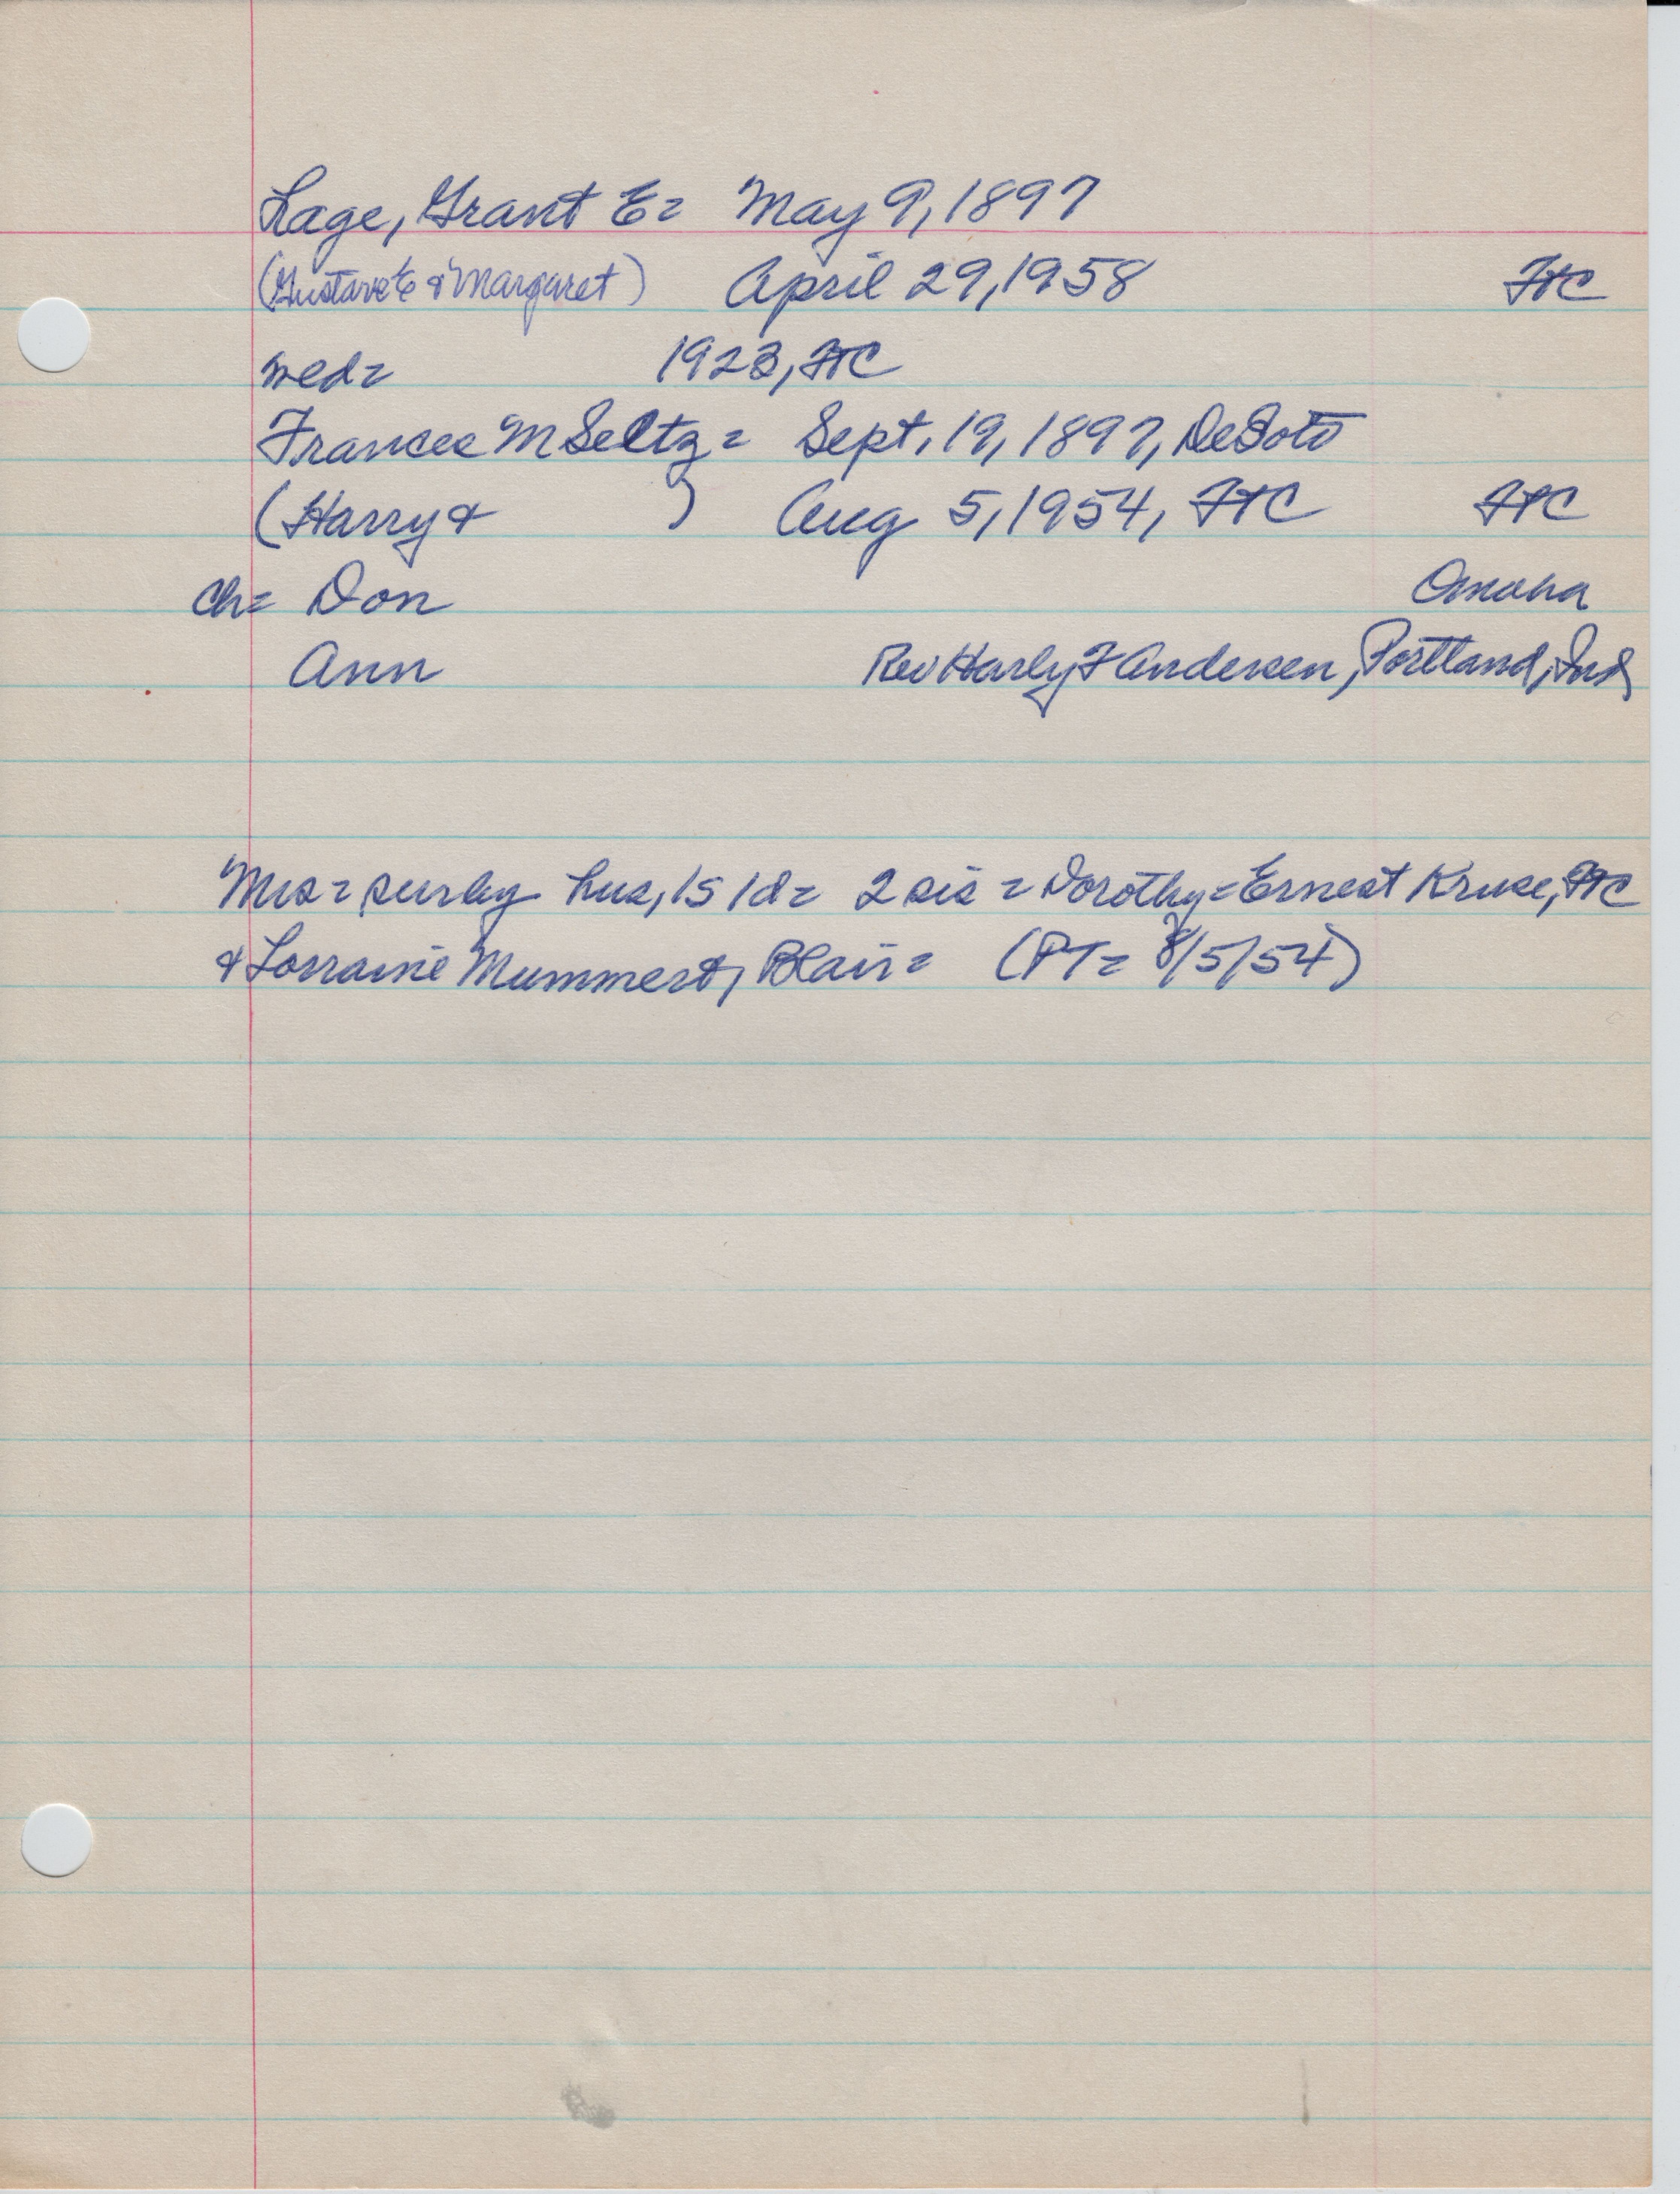 Lage, Grant E= May 9, 1897
(Gustave E & Margaret) April 29, 1958 FtC
wed= 1923, FtC
Frances M Seltz= Sept. 19, 1897, DeSoto
(Harry & ) Aug 5, 1954, FtC FtC
ch= Don Omaha
Ann Rev Harly F Andersen, Portland, Ind
Mrs= surby hus, 1s 1d= 2 sis= Dorothy= Ernest Kruse, FtC
& Lorraine Mummert, Blair= (PT= 8/5/54)